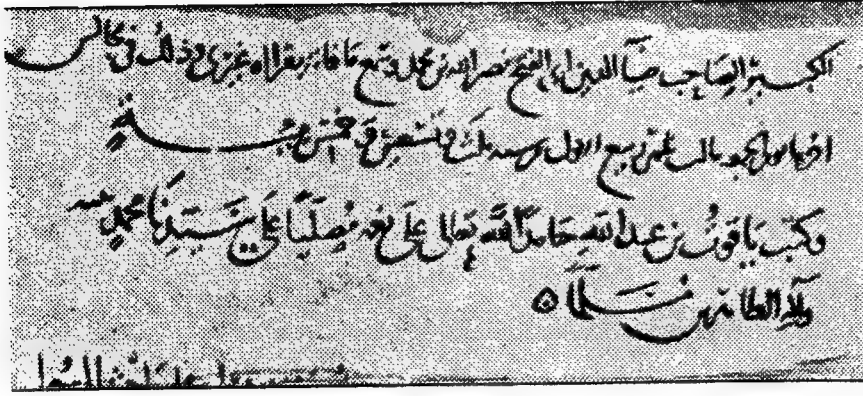 الكبير الصاحب ضيآ الدين ابي الفتح نصر الله بن محمد وسمع ما فاته بقراة غيري وذلك في مجالس
اخرها يوم الجمعه ثالث عشر ربيع الاول سنه ثلث وتسعين وخمس مئة
وكتب ياقوت بن عبد الله حامدًا لله تعالى على نعمه مُصليًا على سيدنا محمد
وآله الطاهرين مسلمًا